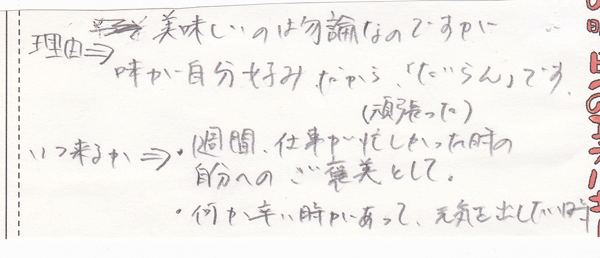 理由⇒ 美味しいのは勿論なのですが
味が自分好みだから、「だいらん」です。
(頑張った)
いつ来るか⇒・1週間、仕事が忙しかった時の
自分へのご褒美として。
・何か辛い時があって、元気を出したい時